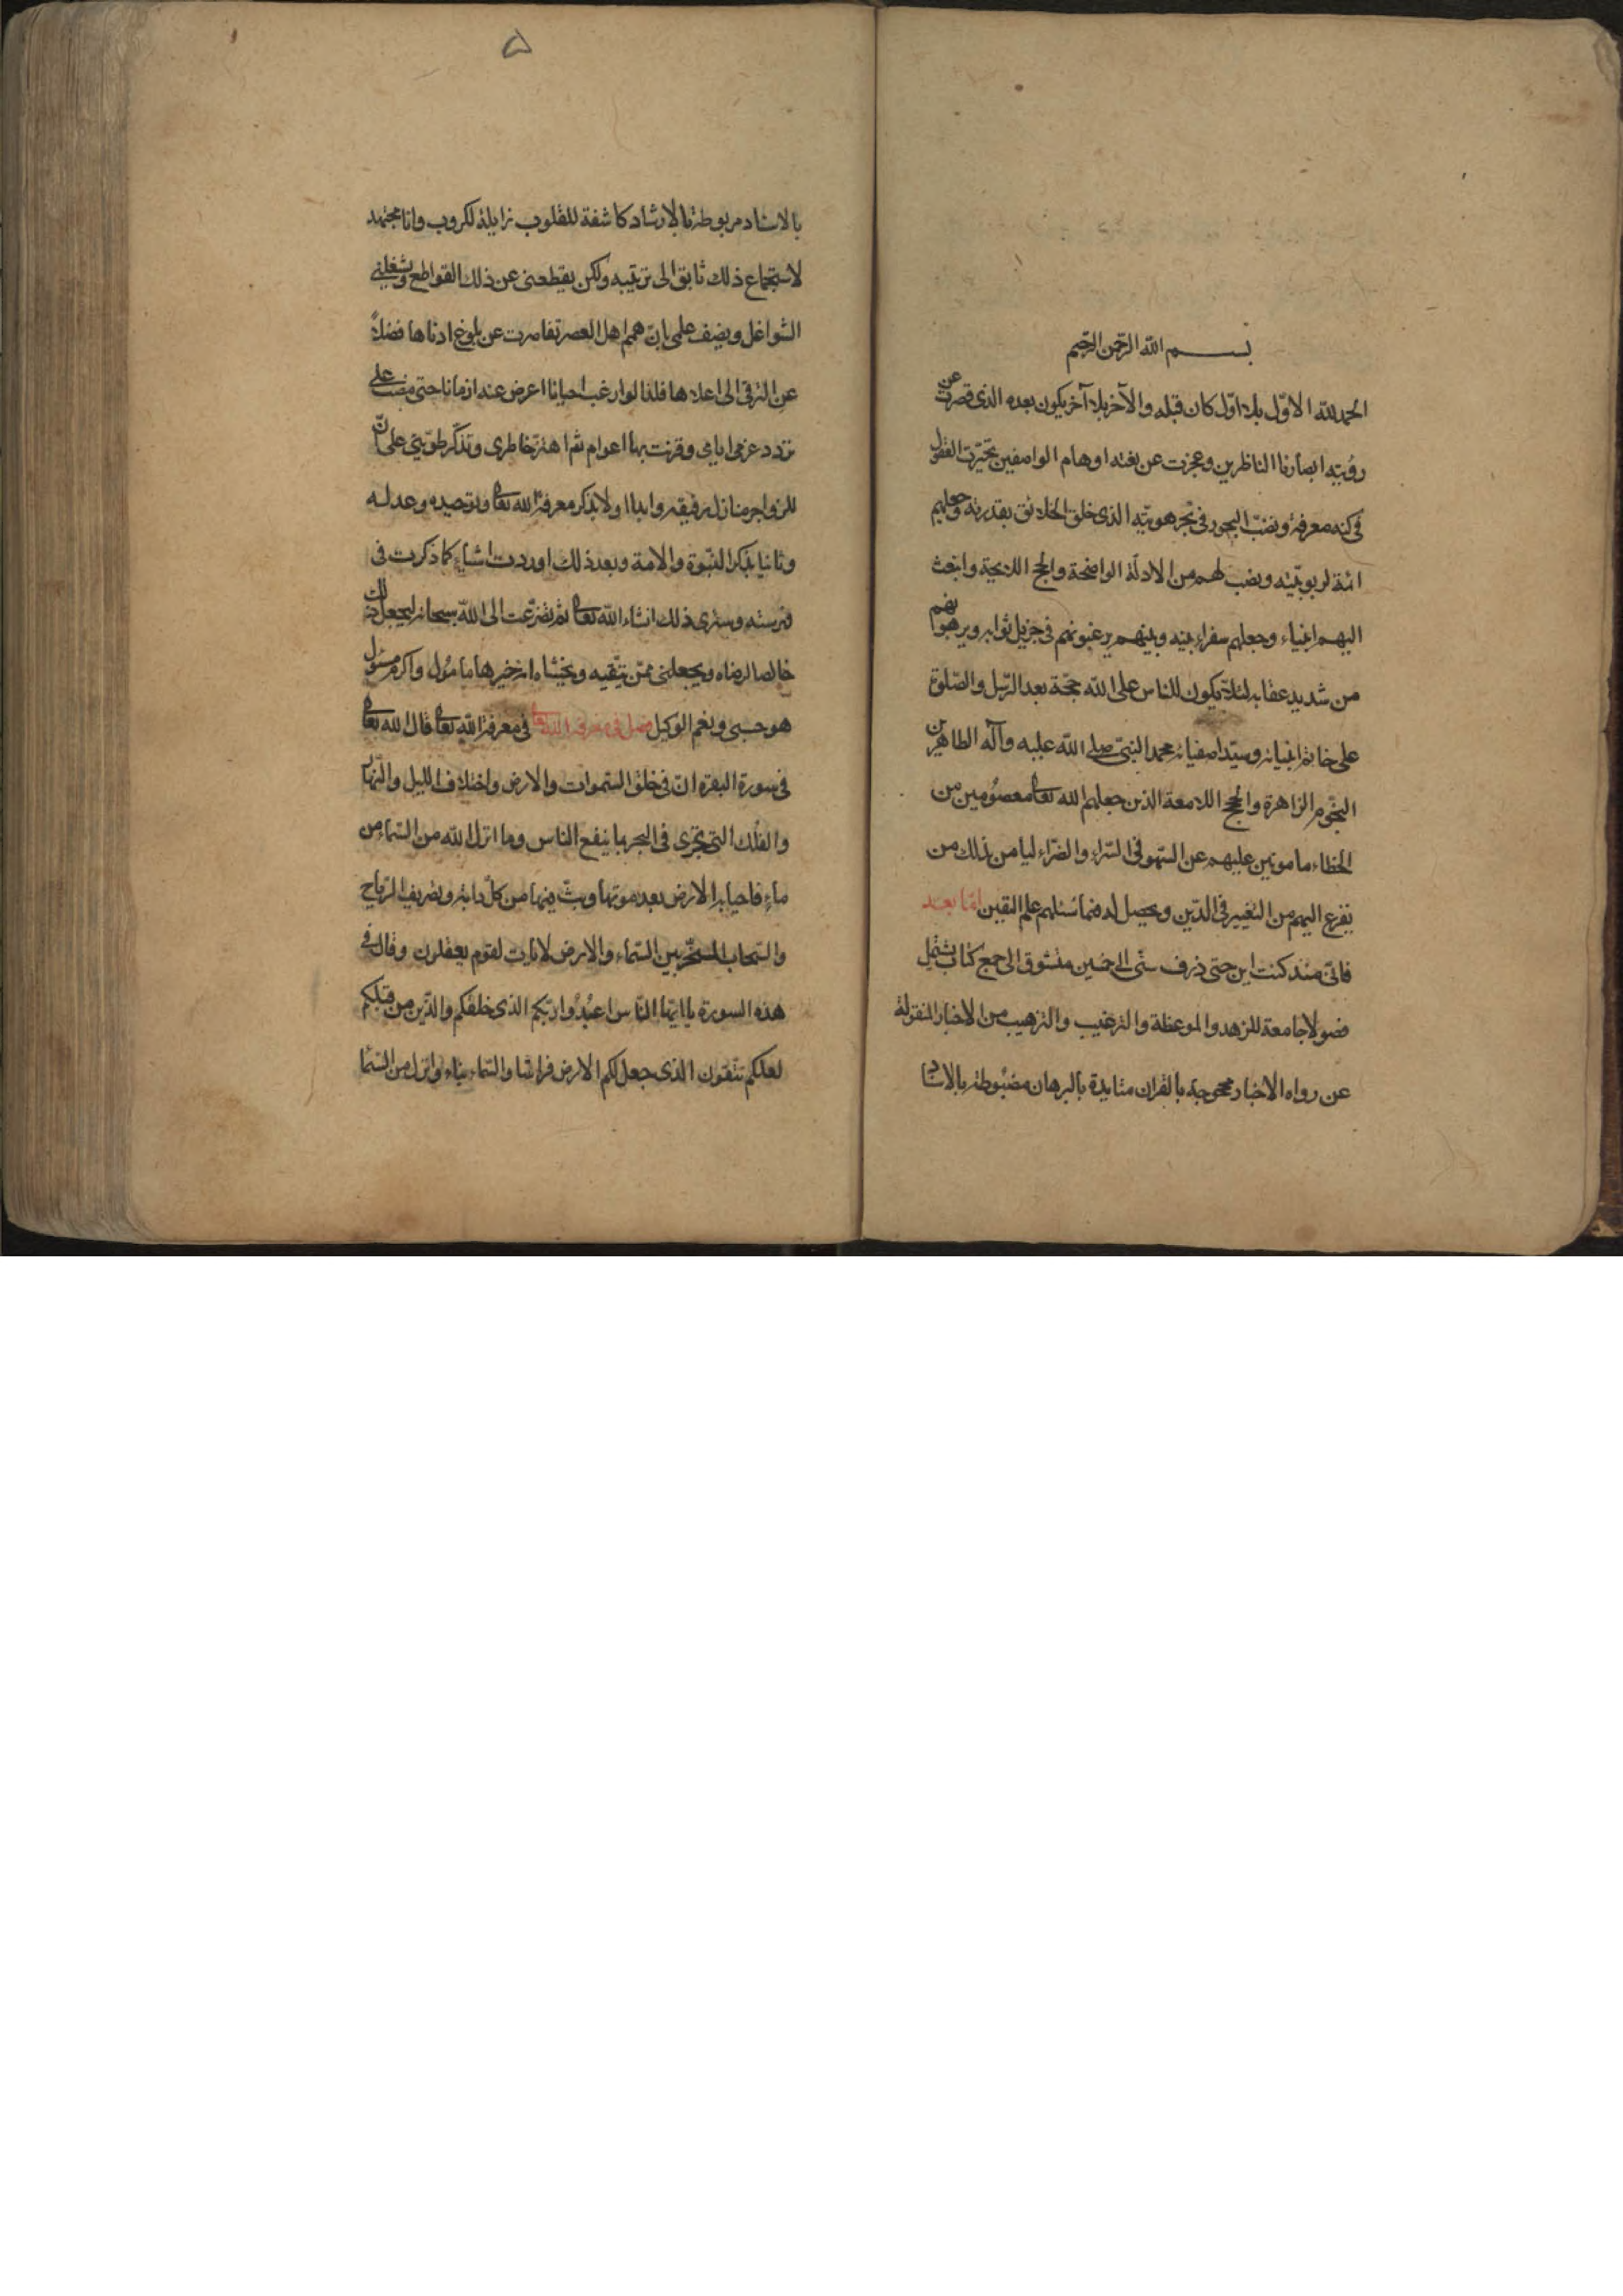 بسم الله الرحمن الرحيم
الحمد لله الاوّل بلا اوّل كان قبله والآخر بلا آخر يكون بعده الذى قصرت عن
رؤيته ابصارنا الناظرين وعجزت عن نعته اوهام الواصفين تحيّرت العقول
فى كنه معرفته ونضب البحور فى بحر هويّته الذى خلق الخلائق بقدرته وجعلهم
ائمة لربوبيّته ونصب لهم من الادلّة الواضحة والحجج اللايحة وابتعث
اليهم انبياء وجعلهم سفراء بينه وبينهم يرغبونهم فى جزيل ثوابه ويرهبوانهم
من شديد عقابه لئلّا يكون للناس على الله حجّة بعد الرّسل والصّلوة
على خاتم انبيائه وسيّد اصفيائه محمد النبىّ صلى الله عليه وآله الطاهرين
النجوم الزاهرة والحجج اللامعة الذين جعلهم الله تعالى معصومين من
الخطاء مامونين عليهم عن السّهو فى السّراء والضّراء ليامن ذلك من
يفزع اليهم من التغيير فى الدّين ويحصل له فيما سئلهم علم اليقين امّا بعد
فانّى منذ كنت ابن حتى ذرف سنّى الى خمسين متشوّق الى جمع كتاب يشتمل
فصولا جامعة للزهد والموعظة والترغيب والترهيب من الاخبار المنقولة
عن رواه الاخبار محجوجة بالقران متايدة بالبرهان مضبوطة بالاسناد
بالاسناد مربوطة بالارشاد كاشفة للقلوب زايلة لكروب وانا مجتهد
لاستجماع ذلك تايق الى ترتيبه ولكن يقطعنى عن ذلك القواطع ويشغلنى
الشواغل ويضف علمى بانّ همم اهل العصر تقاصرت عن بلوغ ادناها فضلاً
عن الترقى الى اعلاها فلذا لو ارغب احيانا اعرض عنه ازمانا حتى مضت على
تردد عزمى ايامى وقرنت بها اعوام ثم اهتز خاطرى وتذكّر طويّتى على انّ
للزواجر منازل رفيقه وابدا اولا بذكر معرفة الله تعالى وتوحيده وعدله
وثانيا بذكر النبّوة والامة وبعد ذلك اوردت اشياء كما ذكرت فى
فهرسته وسترى ذلك انشاء الله تعالى ثم تضرّعت الى الله سبحانه ليجعل ذلك
خالصا لرضاه ويجعلنى ممّن يتّقيه ويخشاه انه خير هاما مؤل واكرم مسؤل
هو حسبى ونعم الوكيل فصل فى معرفة الله تعالى فى معرفة الله تعالى قال الله تعالى
فى سورة البقره ان فى خلق السّموات والارض واختلاف الليل والنّهار
والفلك التى تجرى فى البحر بما ينفع الناس وما انزل الله من السّماء من
ماء فاحيا به الارض بعد موتها وبثّ فيها من كلّ دابة وتصريف الرّياح
والسّحاب المسخّر بين السّماء والارض لايات لقوم يعقلون وقال فى
هذه السورة يا ايّها النّاس اعبُدُوا ربّكم الذى خلقكم والّذين من قبلكم
لعلكم تتّقون الذى جعل لكم الارض فراشا والسّماء بناء وانزل من السّماء